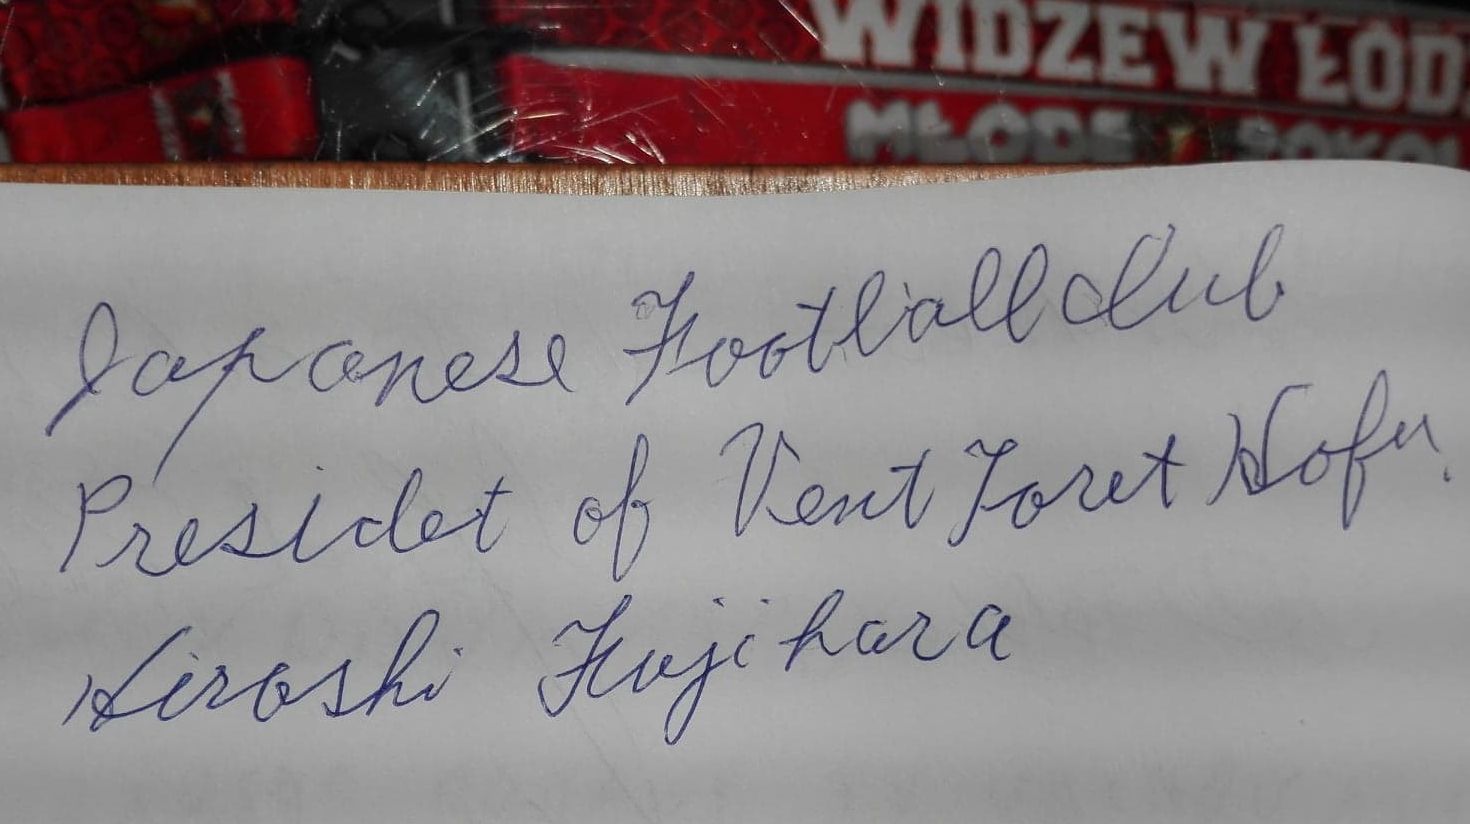 WIDZEW ŁÓDŹ
MŁODE SOKOŁ
Japanese Football club
Presidet of Vent Foret Hofu.
Hiroshi Fujihara